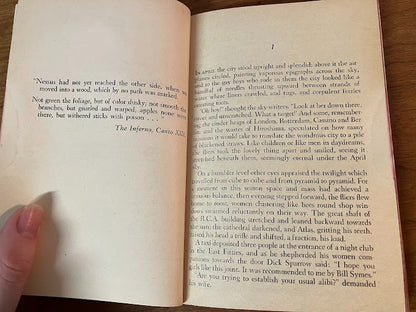 "Nessus had not yet reached the other side, when we
moved into a wood, which by no path was marked.
Not green the foliage, but of color dusky; not smooth the
branches, but gnarled and warped; apples none were
there, but withered sticks with poison . . . ."
The Inferno, Canto XIII
1
IN APRIL the city stood upright and splendid; about it the air
planes circled, painting vaporous epigraphs across the sky,
and to the gay boys who rode in them the city looked like a
handful of needles thrusting upward between strands of
water where liners crawled, and tugs, and corpulent ferries
wearing roots.
"Oh boy!" thought the sky-writers. "Look at her down there,
sweet and unscratched. What a target! And some, remember-
ing the cinder heaps of London, Rotterdam, Cassino and Ber-
lin, and the wastes of Hiroshima, speculated on how many
minutes it would take to translate the wondrous city to a pile
of blackened stalks. Like children or like men in daydreams,
the fliers took the lovely thing apart and smiled, seeing it
stretched beneath them, seemingly eternal under the April
sky.
On a humbler level other eyes appraised the twilight which
travelled from cube to cube and from pyramid to pyramid. For
a moment in this seton space and mass had achieved a
tenuous balance, then evening stepped forward, the fliers flew
home to roost, women clustering like bees round shop win-
dows swarmed reluctantly on their way. The great shaft of
the R.C.A. building stretched and leaned backward towards
the sun; the cathedral darkened, and Atlas, gritting his teeth,
raised his head a trifle and shifted, a fraction, his load.
A taxi deposited three people at the entrance of a night club
in the East Fifties, and as he shepherded his women com-
panions towards the door Dick Sparrow said: "I hope you
girls like this joint. It was recommended to me by Bill Symes."
"Are you trying to establish your usual alibi?" demanded
his wife.